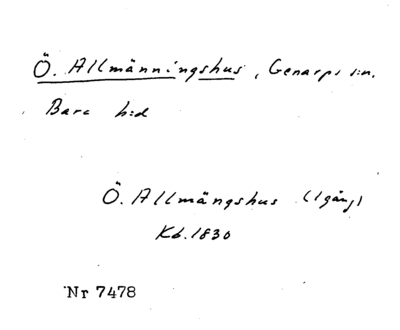 Ö. Allmänningshus, Genarps s:n.
Bara h:d
Ö. Allmängshus (1 gång)
Kb. 1830
Nr 7478